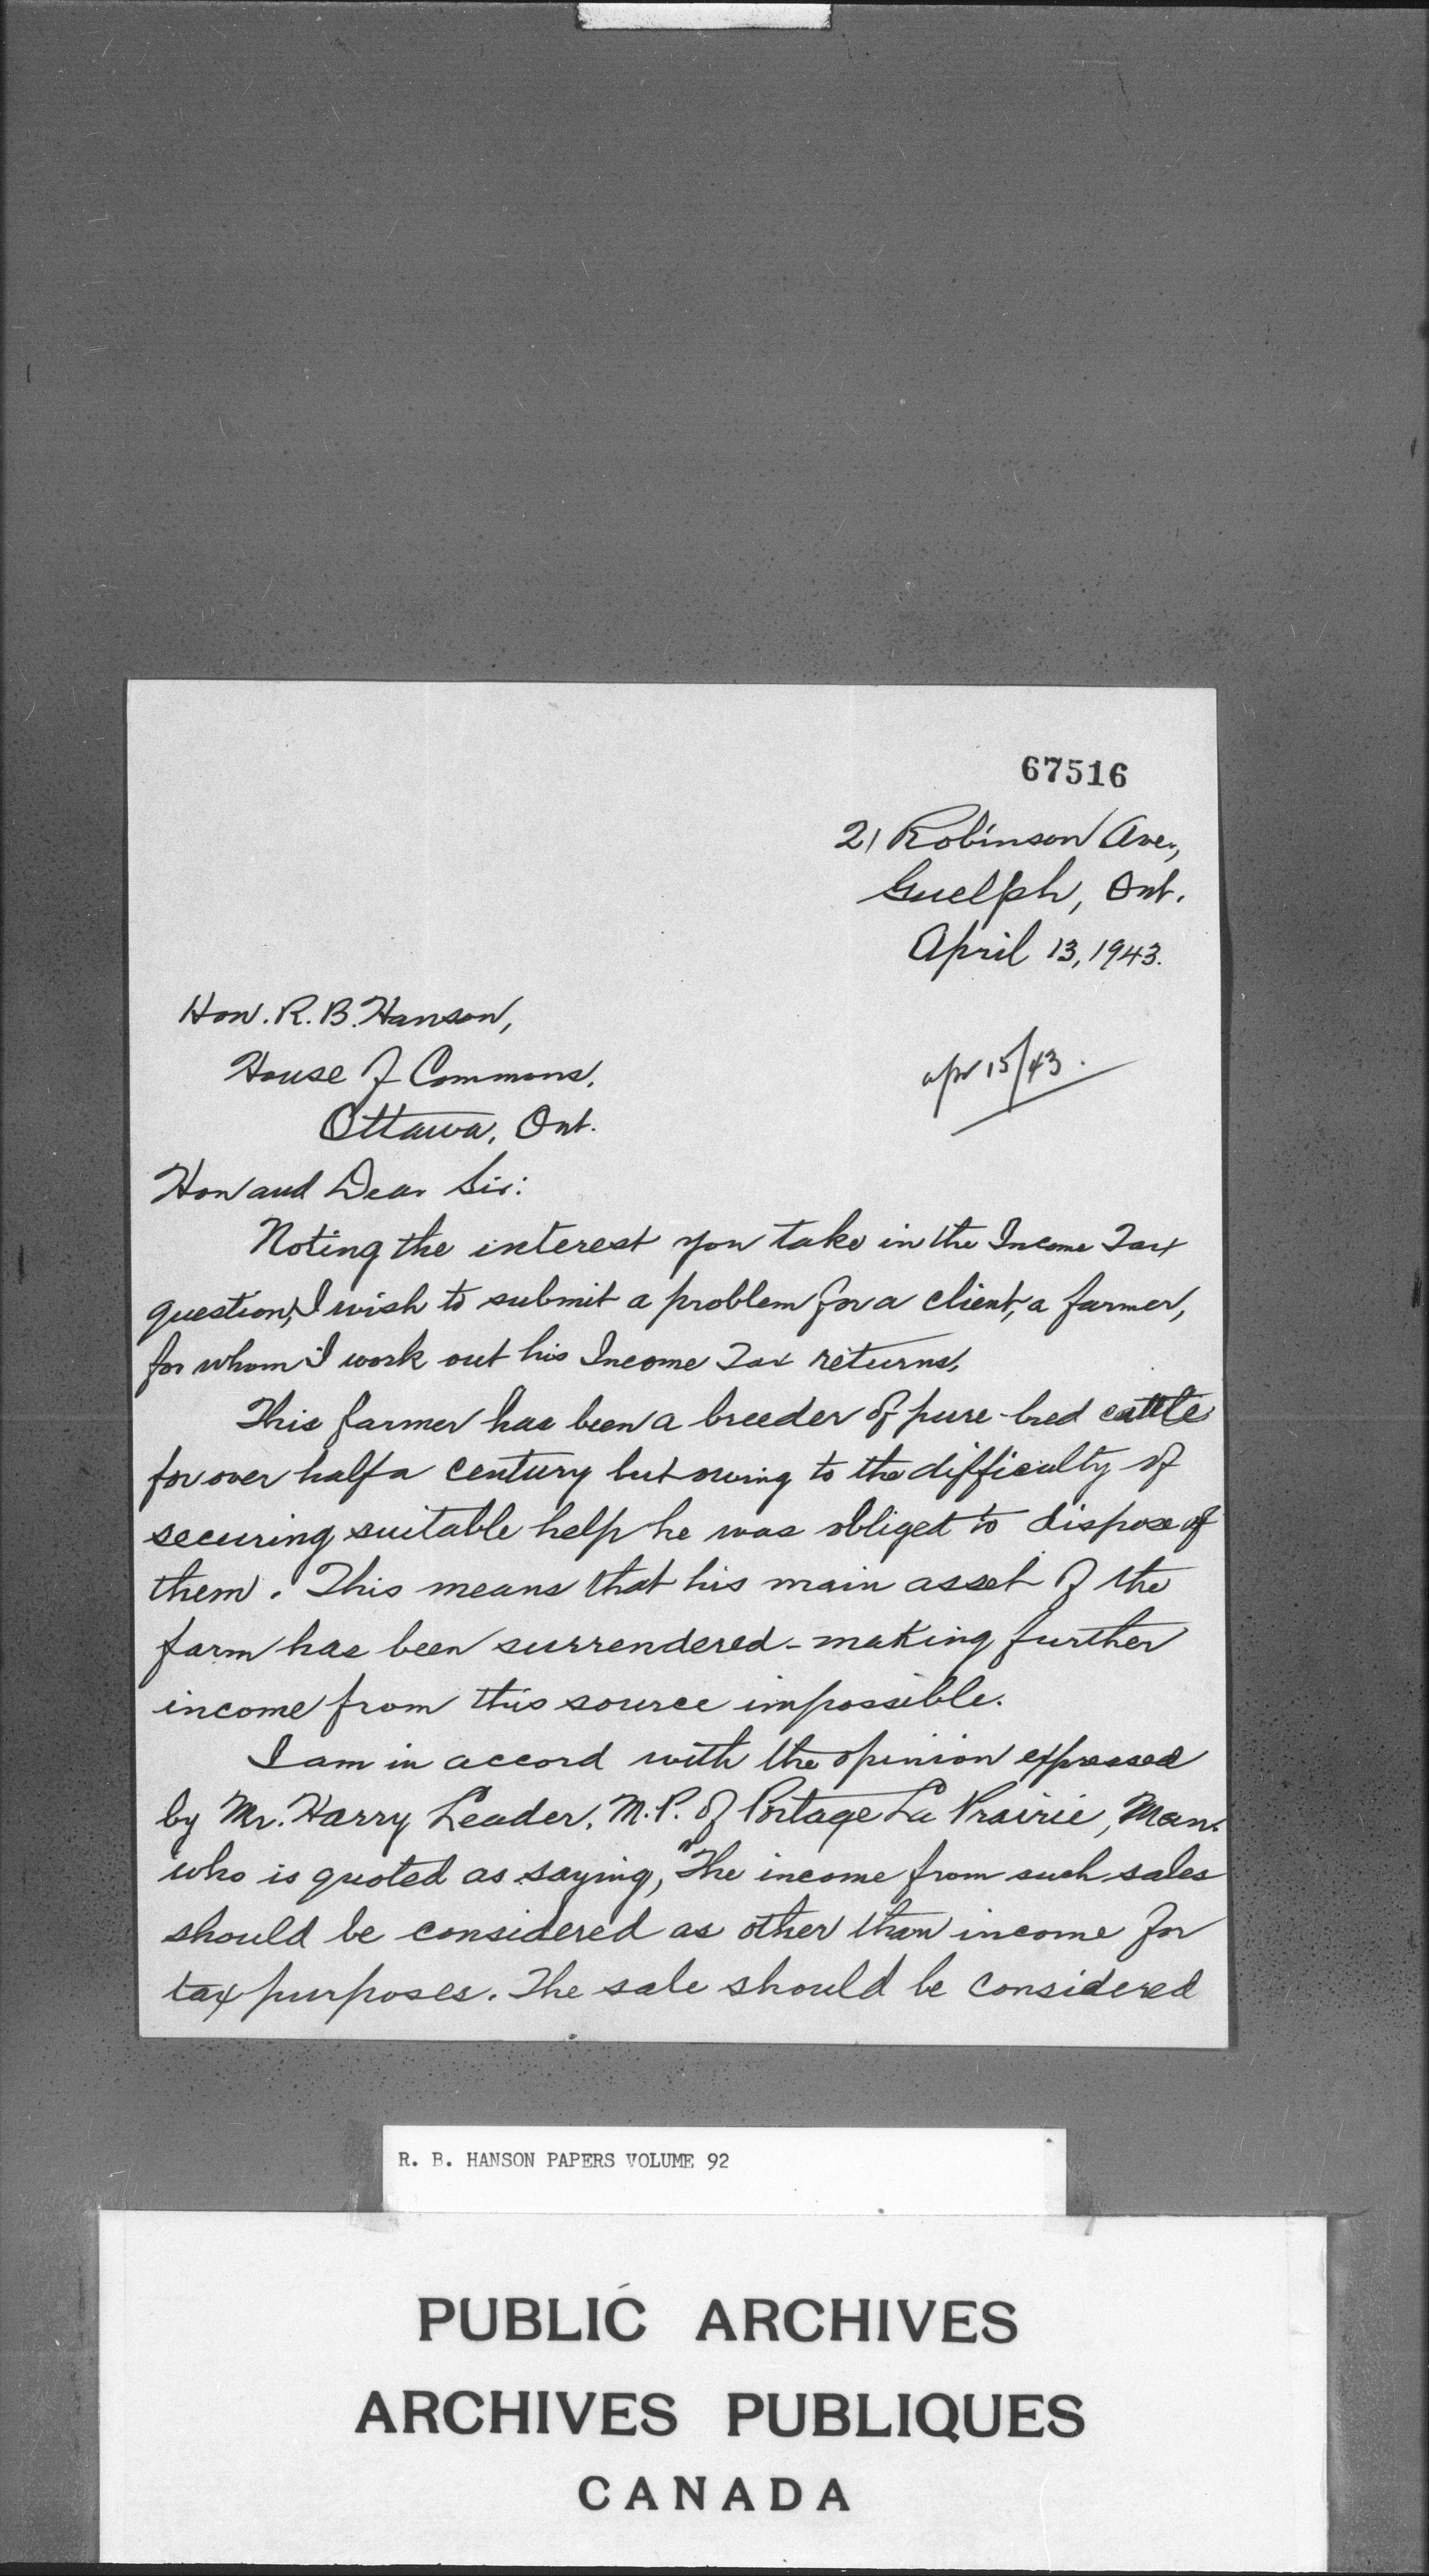 67516
21 Robinson Ave.,
Guelph, Ont.
April 13, 1943.
Hon. R. B. Hanson,
House of Commons,
apr 15/43.
Ottawa, Ont.
Hon and Dear Sir:
Noting the interest you take in the Income Tax
question, I wish to submit a problem for a client, a farmer,
for whom I work out his Income Tax returns.
This farmer has been a breeder of pure-bred cattle
for over half a century but owing to the difficulty of
securing suitable help he was obliged to dispose of
them. This means that his main asset of the
farm has been surrendered - making further
income from this source impossible.
I am in accord with the opinion expressed
by Mr. Harry Leader, M.P. of Portage La Prairie, Man.
who is quoted as saying, "The income from such sales
should be considered as other than income for
tax purposes. The sale should be considered
R. B. HANSON PAPERS VOLUME 92
PUBLIC ARCHIVES
ARCHIVES PUBLIQUES
CANADA